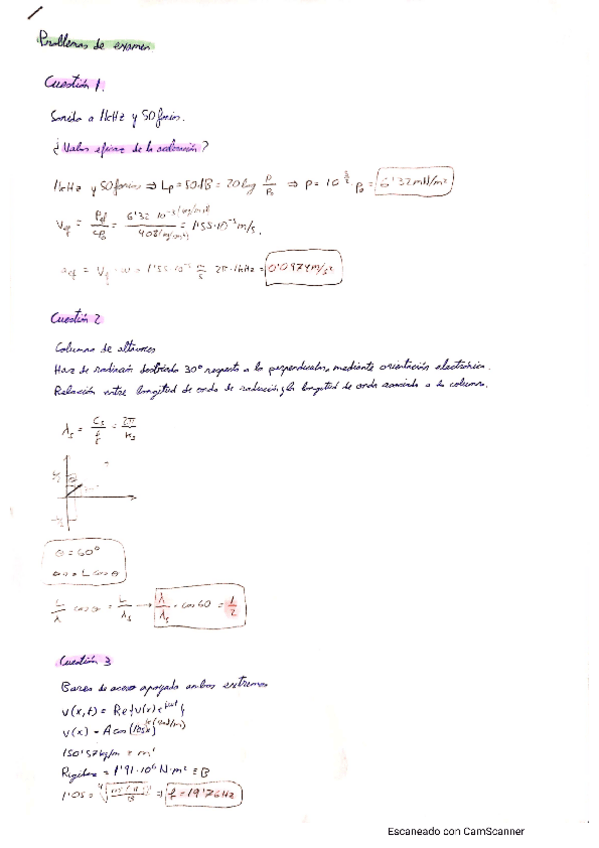 Problemas de examen
Cuestión 1.
Sonido a 1kHz y 50 fonios.
¿Valor eficaz de la aceleración?
1kHz y 50 fonios ⇒ Lp = 50dB = 20log P/P₀ ⇒ P = 10 P₀ = 6'32 mN/m²
= 1'55·10⁻⁵ m/s.
= 0'0974 m/s²
Cuestión 2
Columna de altavoces
Haz de radiación desviado 30° respecto a la perpendicular, mediante orientación electrónica.
Relación entre longitud de onda de radiación y la longitud de onda asociada a la columna.
λs = = 2π/ks
θ = 60°
L cos θ
L/λ cos θ = L/λs → λ/λs = cos 60 = 1/2
Cuestión 3
Barra de acero apoyada ambos extremos
v(x,t) = Re{v(x) e
v(x) = A cos(
150'57 kg/m = m'
= 1'91·10⁶ N·m² ≡ B
1'05 = ⇒ f = 19'76Hz
Escaneado con CamScanner